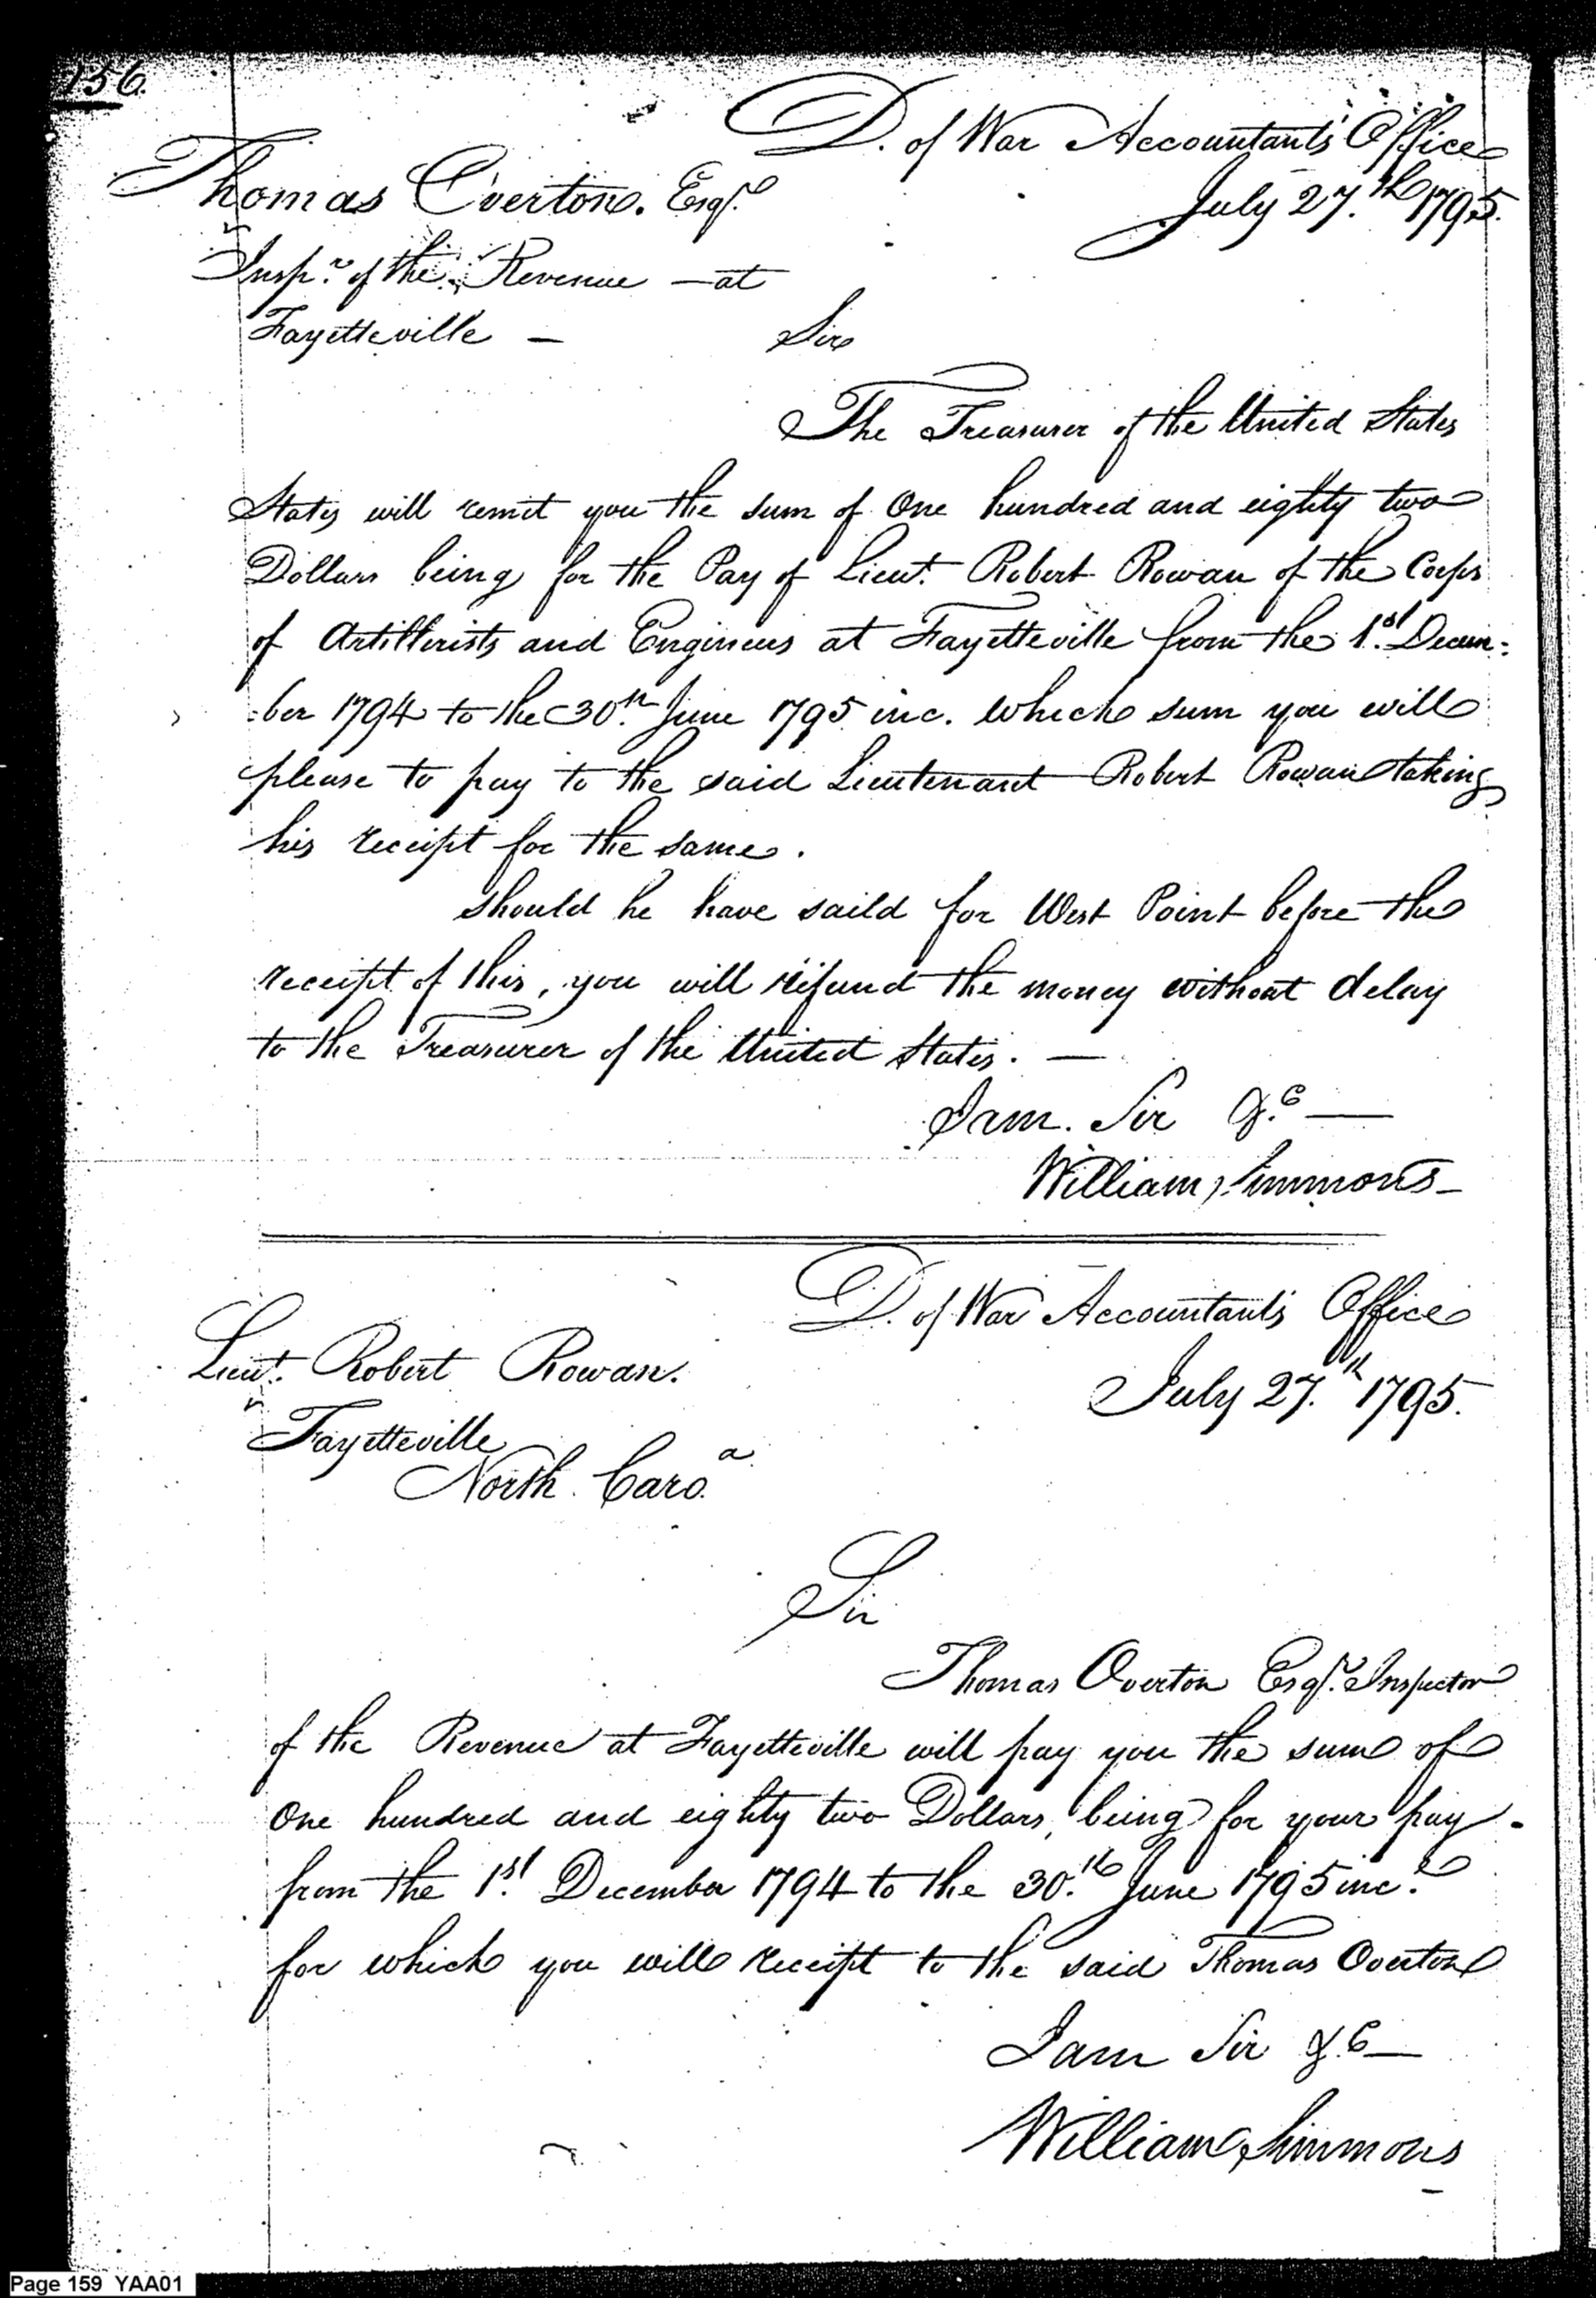 156.
D. of War Accountants Office
July 27.th 1795.
Thomas Overton. Esqr.
Inspr. of the Revenue — at
Fayetteville —
Sir
The Treasurer of the United States
States will remit you the sum of One hundred and eighty two
Dollars being for the Pay of Lieut. Robert Rowan of the Corps
of Artillerists and Engineers at Fayetteville from the 1.st Decem-
-ber 1794 to the 30.th June 1795 inc. which sum you will
please to pay to the said Lieutenant Robert Rowan taking
his receipt for the same.
Should he have saild for West Point before the
receipt of this, you will refund the money without delay
to the Treasurer of the United States. —
I am. Sir &.c —
William Simmons —
D. of War Accountants Office
July 27.th 1795.
Lieut. Robert Rowan.
Fayetteville
North Caro.a
Sir
Thomas Overton Esqr. Inspector
of the Revenue at Fayetteville will pay you the sum of
One hundred and eighty two Dollars, being for your pay -
from the 1.st December 1794 to the 30.th June 1795 inc.e
for which you will receipt to the said Thomas Overton
I am Sir &.c —
William Simmons
Page 159 YAA01